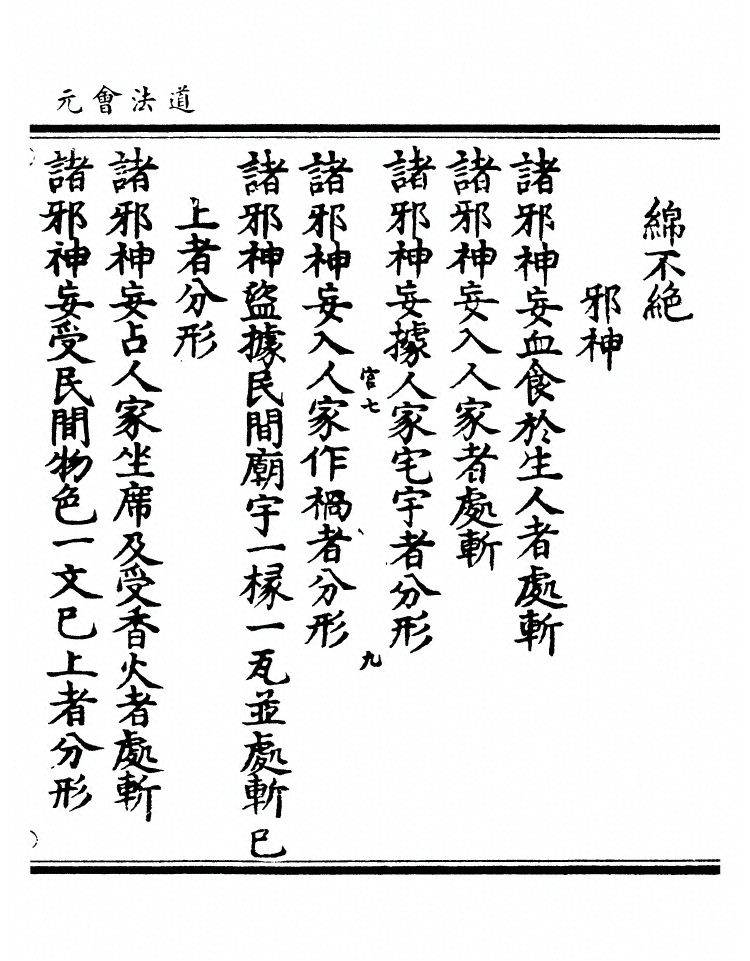 道法會元
綿不絕
邪神
諸邪神妄血食於生人者處斬
諸邪神妄入人家者處斬
諸邪神妄據人家宅宇者分形
官七
九
諸邪神妄入人家作禍者分形
諸邪神盜據民間廟宇一椽一瓦並處斬已
上者分形
諸邪神妄占人家坐席及受香火者處斬
諸邪神妄受民間物色一文已上者分形